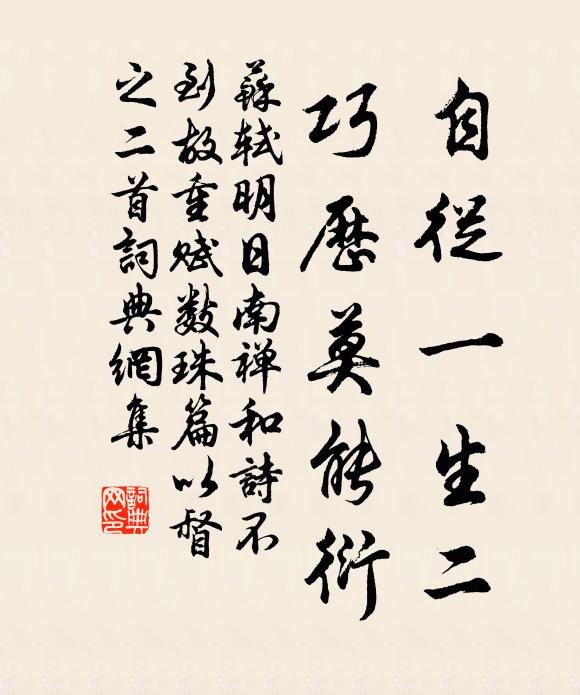 自從一生二
巧歷莫能衍
蘇軾明日南禅和詩不
到故重赋數珠篇以督
之二首詞典網集
詞典网印